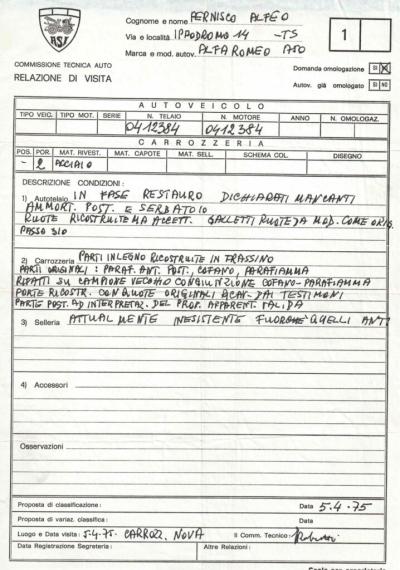 ASI
Cognome e nome PERNISCO ALFEO
Via e località IPPODROMO 14 -TS
Marca e mod. autov. ALFA ROMEO
1
COMMISSIONE TECNICA AUTO
RELAZIONE DI VISITA
Domanda omologazione SI
Autov. già omologato SI NO
AUTOVEICOLO
TIPO VEIC. TIPO MOT. SERIE N. TELAIO N. MOTORE ANNO N. OMOLOGAZ.
0412384 0412384
CARROZZERIA
POS. POR. MAT. RIVEST. MAT. CAPOTE MAT. SELL. SCHEMA COL. DISEGNO
- 2 ACCIAIO
DESCRIZIONE CONDIZIONI :
1) Autotelaio IN FASE RESTAURO DICHIARATI MANCANTI
AMMORT. POST. E SERBATOIO
RUOTE RICOSTRUITE MA ACCETT. GALLETTI RUOTE DA MOD. COME ORIG.
PASSO 310
2) Carrozzeria PARTI IN LEGNO RICOSTRUITE IN FRASSINO
PARTI ORIGINALI : PARAF. ANT. POST., COFANO, PARAFIAMMA
RIFATTI SU CAMPIONE VECCHIO CONGIUNZIONE COFANO-PARAFIAMMA
PORTE RICOSTR. CON QUOTE ORIGINALI DAI TESTIMONI
PARTE POST. AD INTERPRETAZ. DEL PROP. APPARENT. VALIDA
3) Selleria ATTUALMENTE INESISTENTE FUORCHE' QUELLI ANT.
4) Accessori
Osservazioni
Proposta di classificazione : Data 5.4.75
Proposta di variaz. classifica : Data
Luogo e Data visita : 5.4.75. CARROZZ. NOVA Il Comm. Tecnico :
Data Registrazione Segreteria : Altre Relazioni :